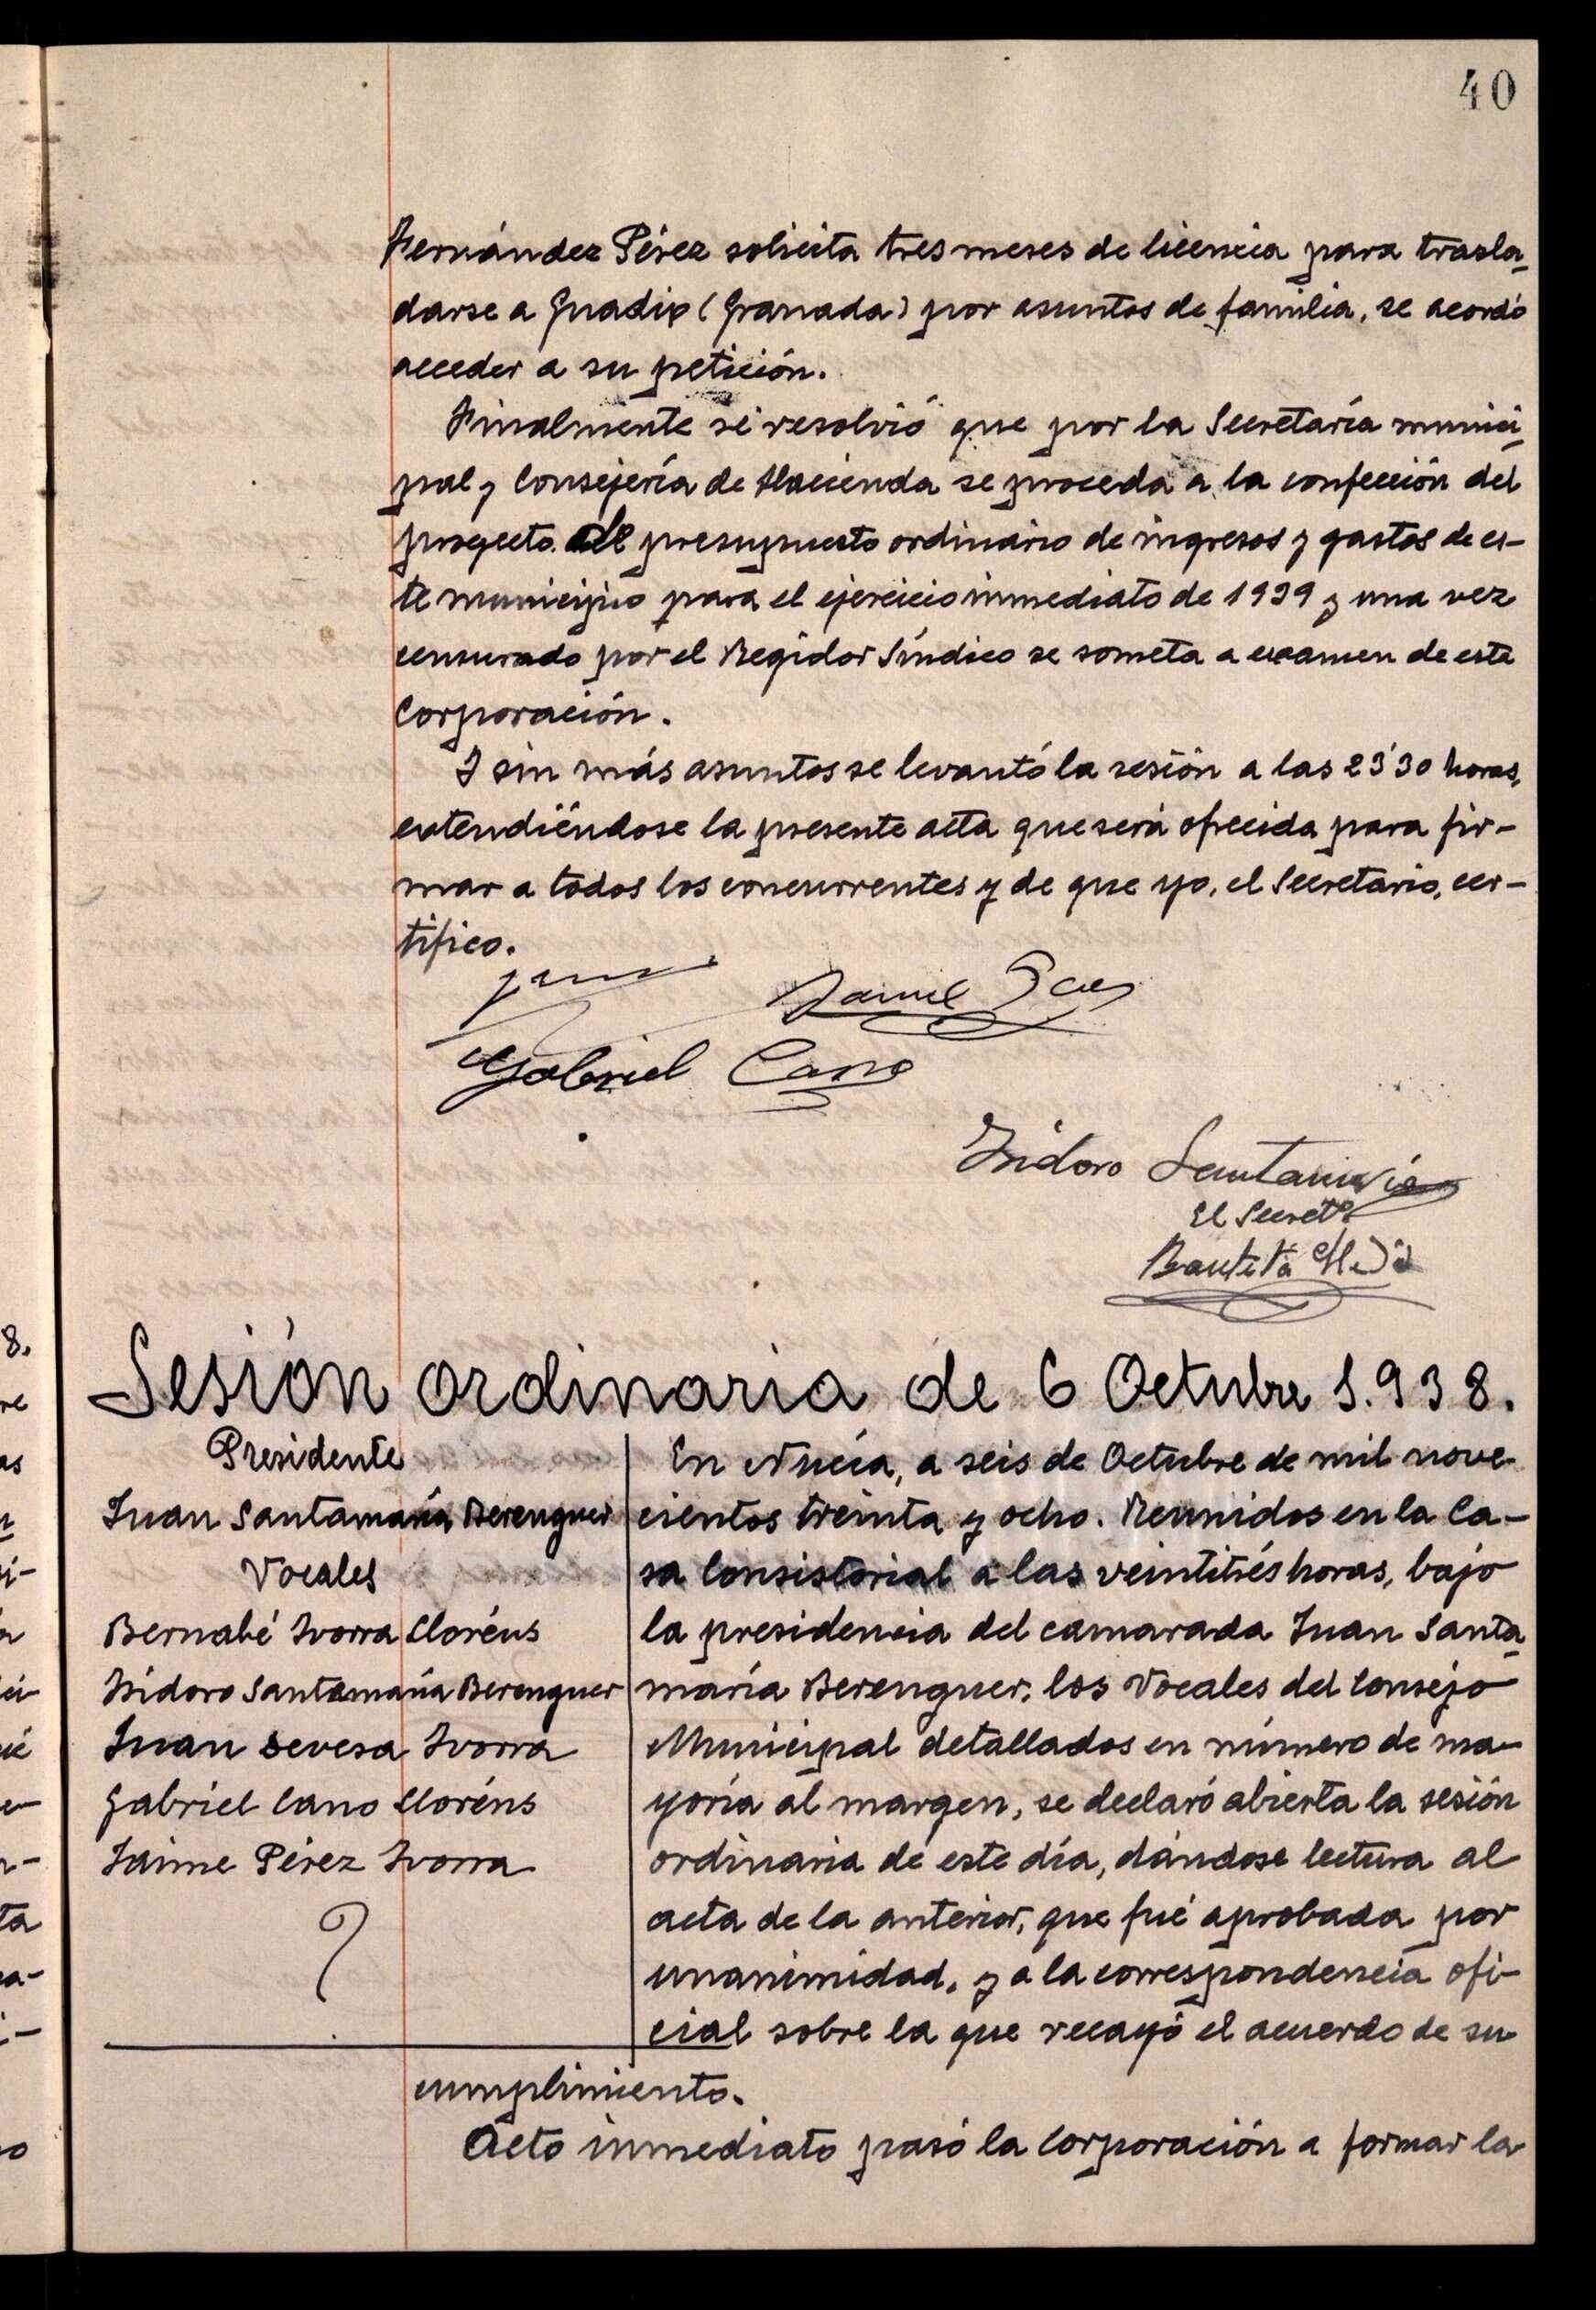 40
Hernández Pérez solicita tres meses de licencia para trasla-
darse a Guadix (Granada) por asuntos de familia, se acordó
acceder a su petición.
Finalmente se resolvió que por la Secretaría munici-
pal y Consejería de Hacienda se proceda a la confección del
proyecto de presupuesto ordinario de ingresos y gastos de es-
te municipio para el ejercicio inmediato de 1939 y una vez
censurado por el Regidor Síndico se someta a examen de esta
Corporación.
Y sin más asuntos se levantó la sesión a las 23'30 horas,
extendiéndose la presente acta que será ofrecida para fir-
mar a todos los concurrentes y de que yo, el Secretario, cer-
tifico.
Gabriel Cano
Isidoro Santamaría
El Secretº
Bautista
Sesión ordinaria de 6 Octubre 1.938.
Presidente
Juan Santamaría Berenguer
Vocales
Bernabé Ivorra Lloréns
Isidoro Santamaría Berenguer
Juan Devesa Ivorra
Gabriel Cano Lloréns
Jaime Pérez Ivorra
En Nucía, a seis de Octubre de mil nove-
cientos treinta y ocho. Reunidos en la Ca-
sa Consistorial a las veintitrés horas, bajo
la presidencia del camarada Juan Santa-
maría Berenguer, los Vocales del Consejo
Municipal detallados en número de ma-
yoría al margen, se declaró abierta la sesión
ordinaria de este día, dándose lectura al
acta de la anterior, que fué aprobada por
unanimidad, y a la correspondencia ofi-
cial sobre la que recayó el acuerdo de su
cumplimiento.
Acto inmediato pasó la Corporación a formar la